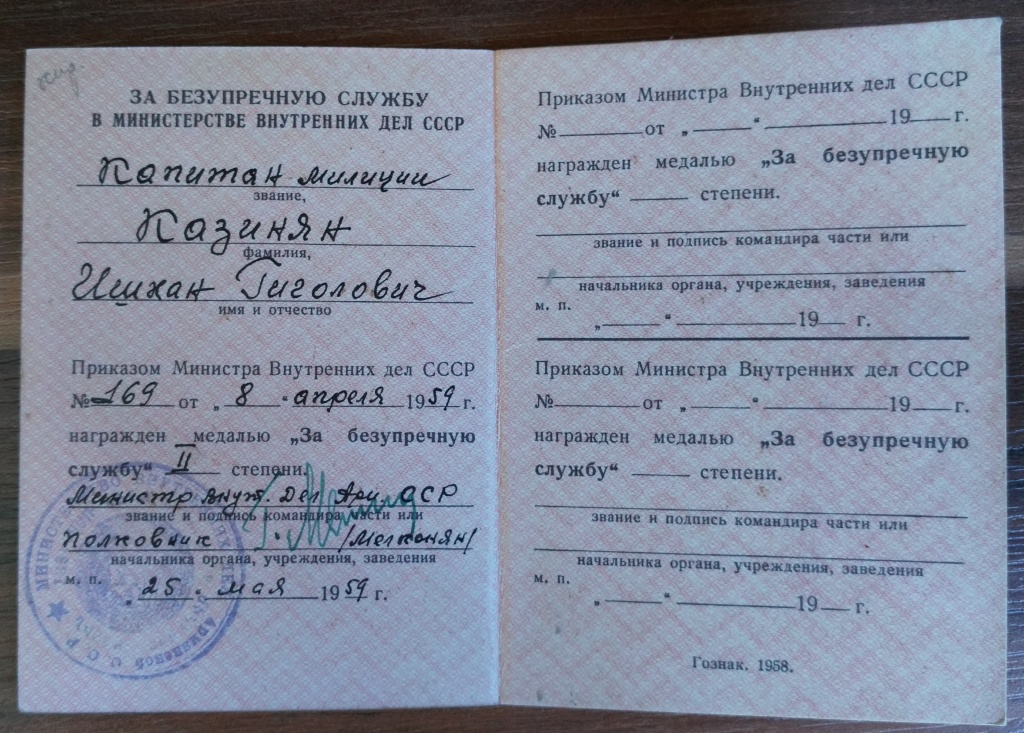 ЗА БЕЗУПРЕЧНУЮ СЛУЖБУ
В МИНИСТЕРСТВЕ ВНУТРЕННИХ ДЕЛ СССР
Капитан милиции
звание,
Казинян
фамилия,
Ишхан Гиголович
имя и отчество
Приказом Министра Внутренних дел СССР
№ 169 от „ 8 “ апреля 1959 г.
награжден медалью „За безупречную
службу“ II степени.
Министр внут. Дел Арм. ССР
звание и подпись командира части или
Полковник /Мелконян/
начальника органа, учреждения, заведения
м. п.
„ 25 “ мая 1959 г.
Приказом Министра Внутренних дел СССР
№ от „ “ 19 г.
награжден медалью „За безупречную
службу“ степени.
звание и подпись командира части или
начальника органа, учреждения, заведения
м. п.
„ “ 19 г.
Приказом Министра Внутренних дел СССР
№ от „ “ 19 г.
награжден медалью „За безупречную
службу“ степени.
звание и подпись командира части или
начальника органа, учреждения, заведения
м. п.
„ “ 19 г.
Гознак. 1958.